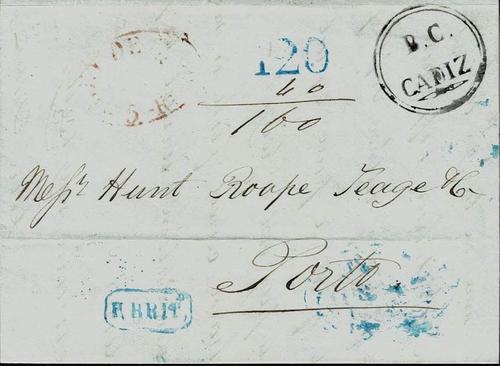 120
40
160
B.C.
CADIZ
Messrs Hunt Roope Teage & Co.
Porto.
P. BRITo